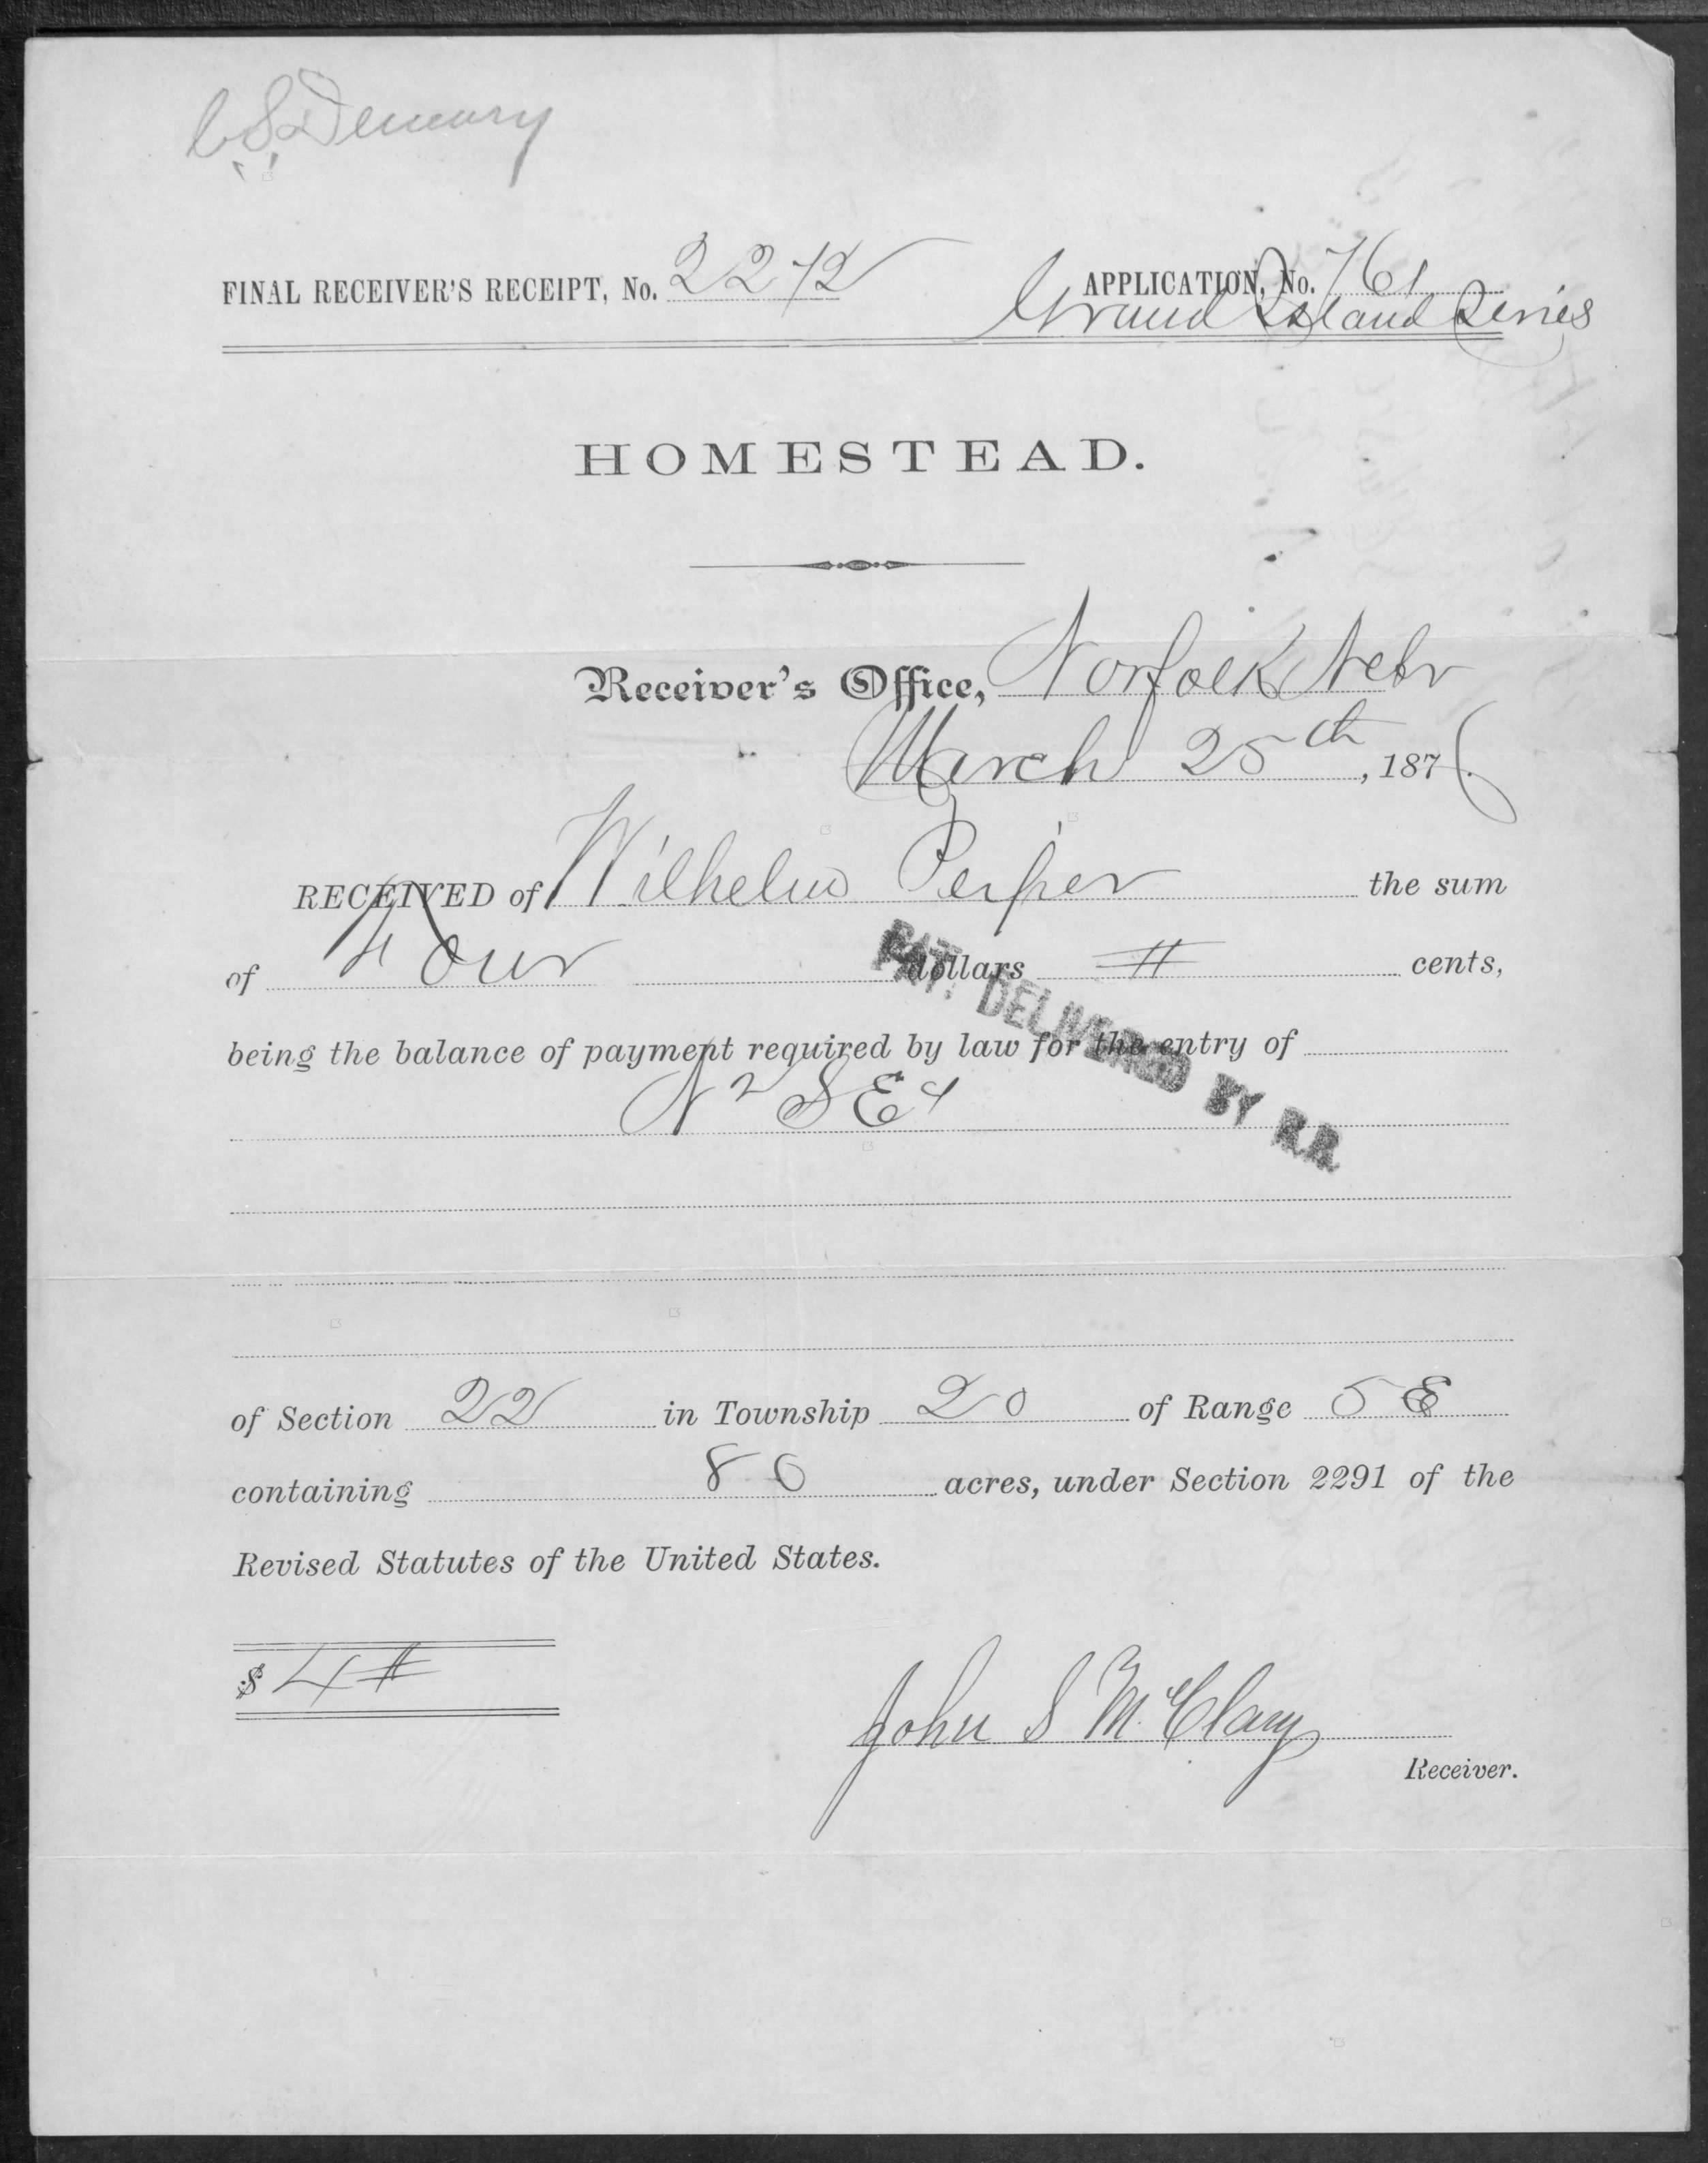 C.S. Demary
FINAL RECEIVER'S RECEIPT, No. 2272 APPLICATION, No. 761
Grand Island Series
HOMESTEAD.
Receiver's Office, Norfolk Nebr
March 25th, 187
RECEIVED of Wilhelm the sum
of Four dollars # cents,
being the balance of payment required by law for the entry of
N2 SE4
PAT. DELIVERED BY R.R.
of Section 22 in Township 20 of Range 5 E
containing 80 acres, under Section 2291 of the
Revised Statutes of the United States.
$ 4 #
John S McClary
Receiver.